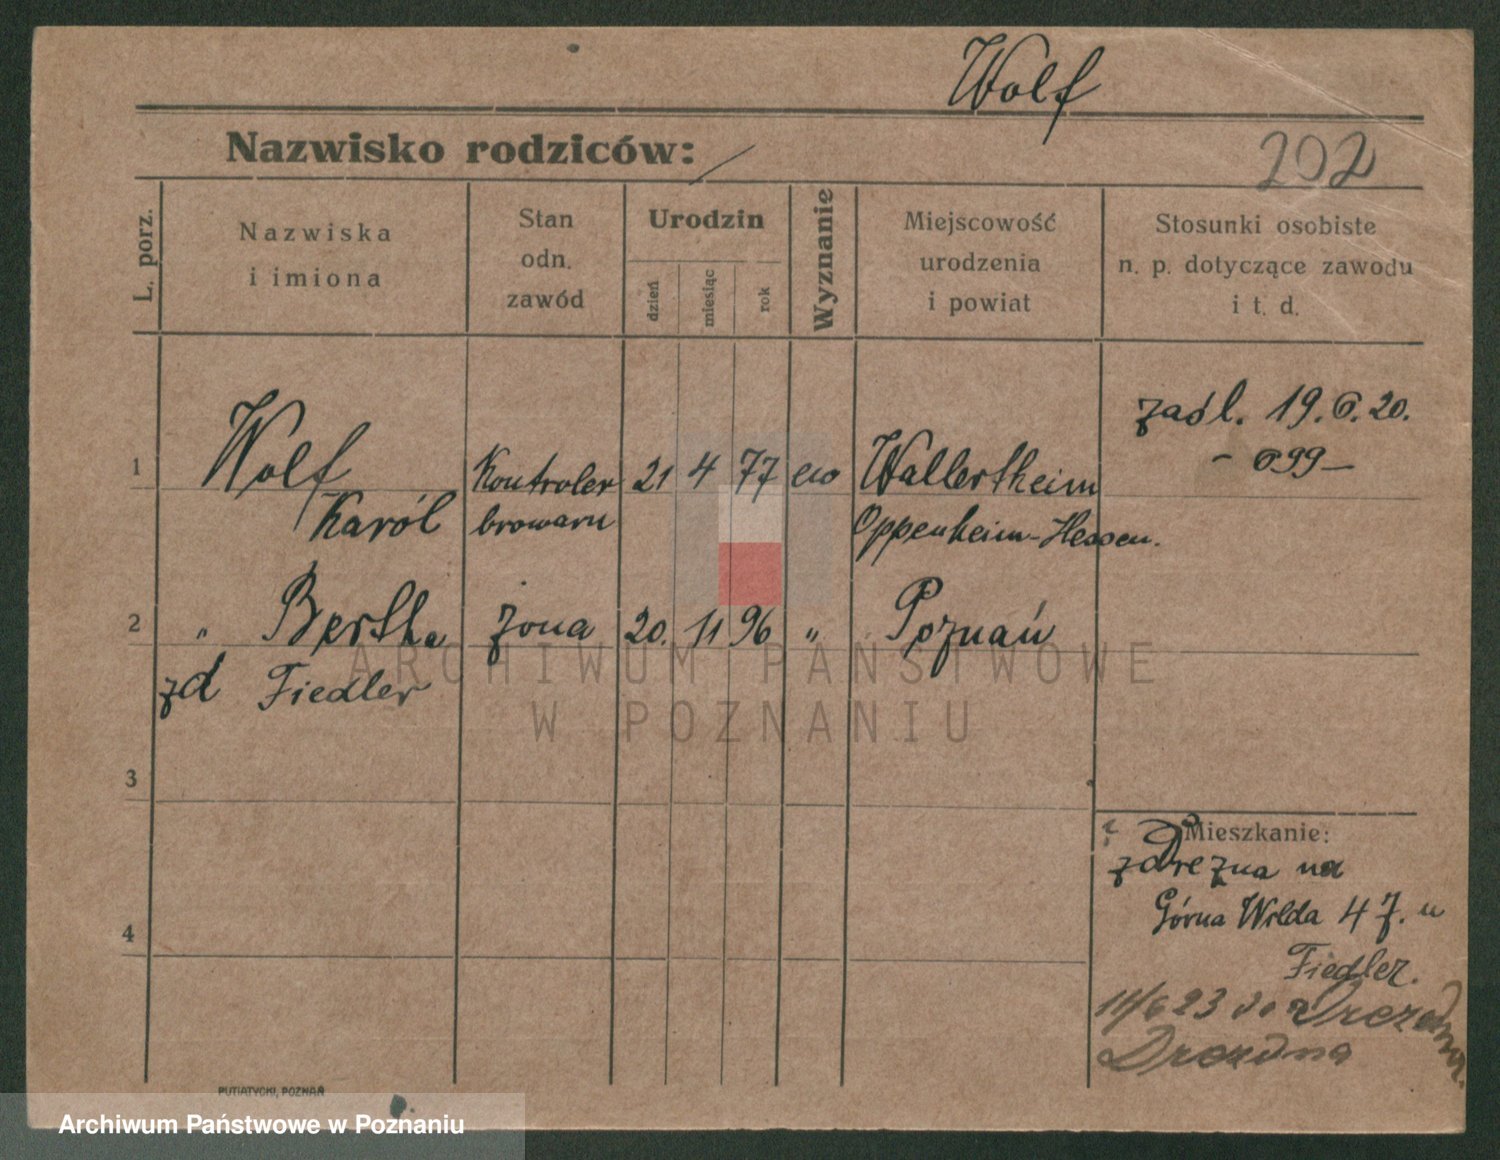 Wolf
Nazwisko rodziców: /
202
L. porz.
Nazwiska
i imiona
Stan
odn.
zawód
Urodzin
dzień
miesiąc
rok
Wyznanie
Miejscowość
urodzenia
i powiat
Stosunki osobiste
n. p. dotyczące zawodu
i t. d.
zaśl. 19.6.20.
- 699 -
1 Wolf Kontroler 21 4 77 ew Wallertheim
Karól browaru Oppenheim-Hessen.
2 " Bertha żona 20. 11 96 " Poznań
zd Fiedler
3
4
Mieszkanie:
z Drezna na
Górna Wilda 47. u
Fiedler.
11/6 23 do Drezdna
Drezdna
PUTIATYCKI, POZNAŃ
ARCHIWUM PAŃSTWOWE
W POZNANIU
Archiwum Państwowe w Poznaniu